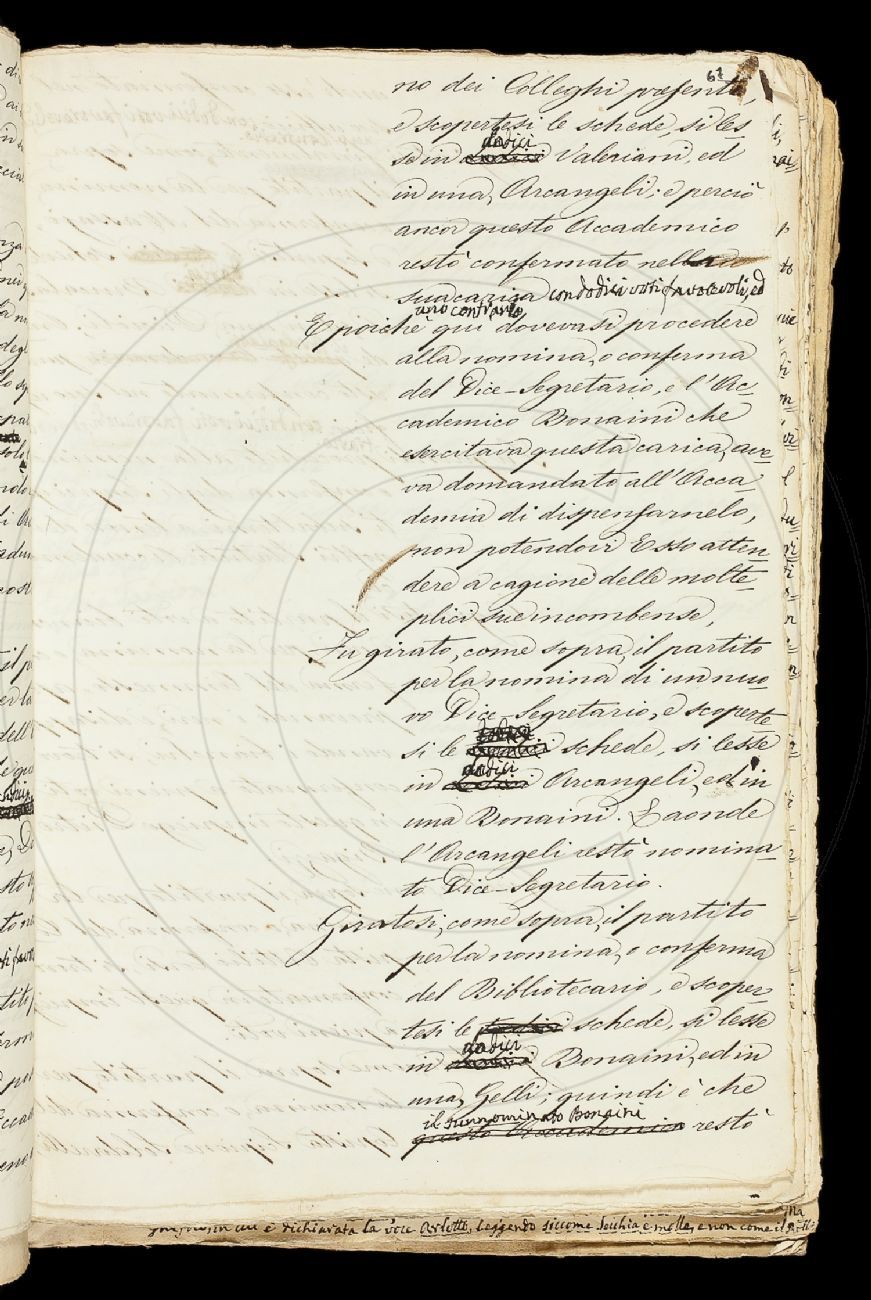 61
no dei Colleghi presenti,
e scopertesi le schede, si les
se in dodici Valeriani, ed
in una, Arcangeli; e perciò
ancor questo Accademico
restò confermato nella
sua carica con dodici voti favorevoli, ed
uno contrario,
E poichè qui dovevasi procedere
alla nomina, o conferma
del Vice-Segretario, e l'Ac-
cademico Bonaini che
esercitava questa carica, ave=
va domandato all'Acca-
demia di dispensarnelo,
non potendovi Esso atten=
dere a cagione delle molte-
plici sue incombense,
Fu girato, come sopra, il partito
per la nomina di un nuo-
vo Vice-Segretario, e scoperte
si le schede, si lesse
in dodici Arcangeli, ed in
una Bonaini. Laonde
l'Arcangeli restò nomina-
to Vice-Segretario.
Giratosi, come sopra, il partito
per la nomina, o conferma
del Bibliotecario, e scoper-
tesi le schede, si lesse
in dodici Bonaini, ed in
una, Gelli; quindi è che
il sunnominato Bonaini
questo Accademico restò
in cui è dichiarata la voce Arlotto, leggendo siccome Secchia è molle, e non come il